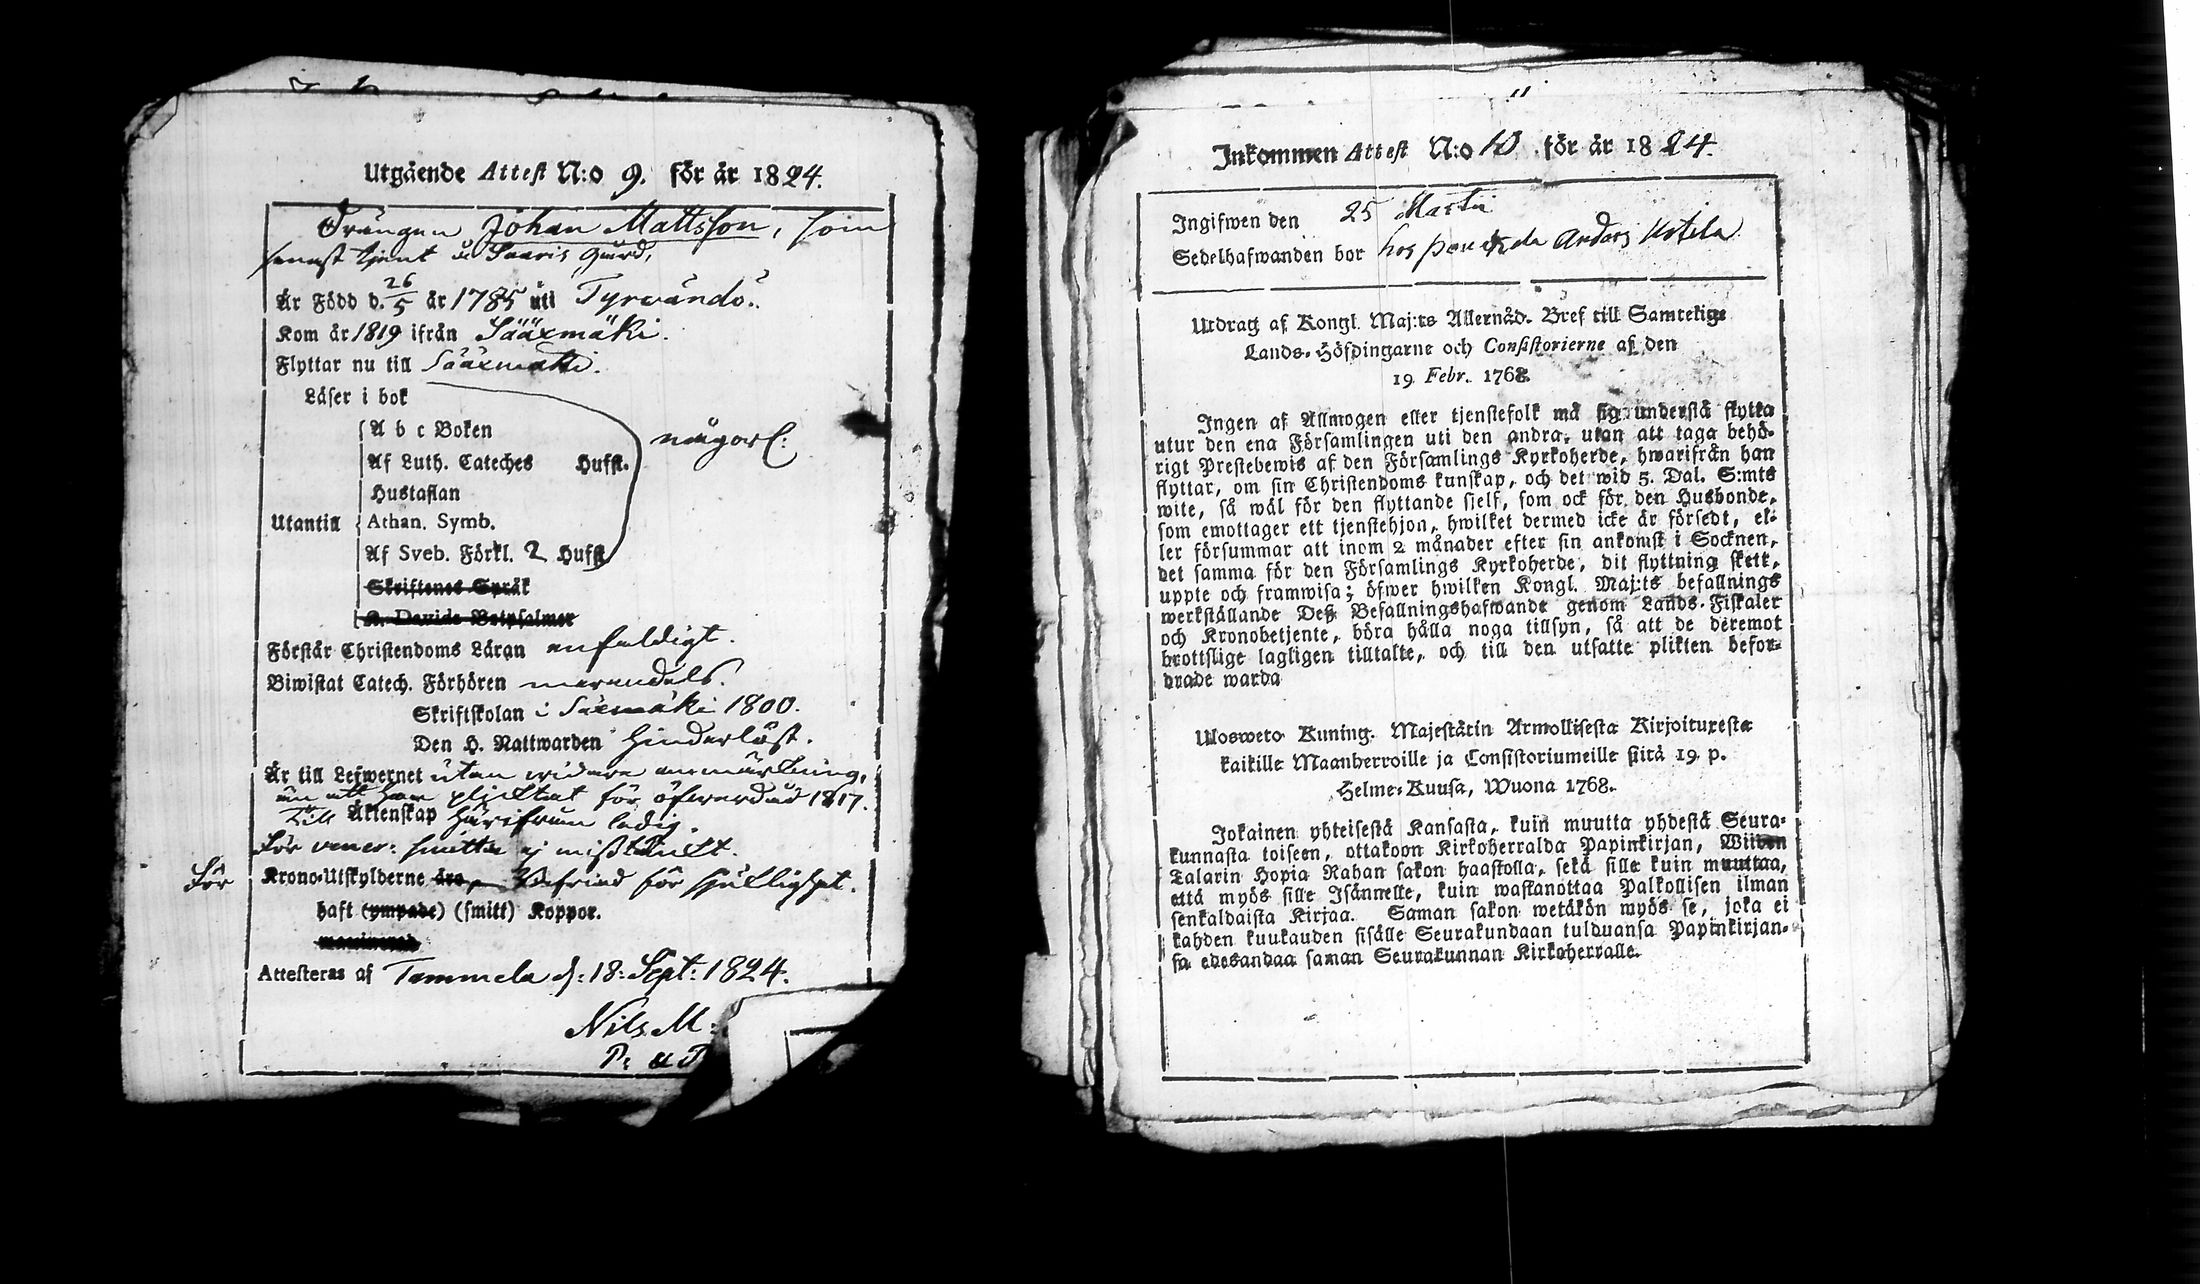 Utgående Attest N:o 9. för år 1824.
Drängen Johan Mattsson, som
senast tjent å Saaris gård,
Är Född d. 26/5 år 1785 uti Tyrvändö.
Kom år 1819 ifrån Sääxmäki.
Flyttar nu till Sääxmäki.
Läser i bok
A b c Boken
någorl:
Af Luth. Cateches Hufst.
Hustaflan
Utantill Athan. Symb.
Af Sveb. Förkl. 2 Hufst
Skriftenes Språk
K. Davids Botpsalmer
Förstår Christendoms Läran enfaldigt.
Biwistat Catech. Förhören merendels.
Skriftskolan i Sääxmäki 1800.
Den H. Nattwarden hinderlöst.
Är till Lefwernet utan widare anmärkning,
än att han pliktat för öfwerdåd 1817.
Till Äktenskap härifrån ledig.
För vener: smitta ej misstänkt.
För Krono-Utskylderne äro, befriad för sjuklighet.
haft (ympade) (smitt) Koppor.
Attesteras af Tammela d: 18: Sept: 1824.
Nils M:
P:
Inkommen Attest N:o 10 för år 1824.
Ingifwen den 25 Martii
Sedelhafwanden bor hos Anders Kotila
Utdrag af Kongl. Maj:ts Allernåd. Bref till Samtelige
Lands-Höfdingarne och Consistorierne af den
19 Febr. 1768.
Ingen af Allmogen eller tjenstefolk må sig understå flytta
utur den ena Församlingen uti den andra, utan att taga behö-
rigt Prestebewis af den Församlings Kyrkoherde, hwarifrån han
flyttar, om sin Christendoms kunskap, och det wid 5. Dal. S:mts
wite, så wäl för den flyttande sjelf, som ock för den Husbonde,
som emottager ett tjenstehjon, hwilket dermed icke är försedt, el-
ler försummar att inom 2 månader efter sin ankomst i Socknen,
det samma för den Församlings Kyrkoherde, dit flyttning skett,
uppte och framwisa; öfwer hwilken Kongl. Maj:ts befallnings
werkställande Deß Befallningshafwande genom Lands-Fiskaler
och Kronobetjente, böra hålla noga tillsyn, så att de deremot
brottslige lagligen tilltalte, och till den utsatte plikten befor-
drade warda
Ulosweto Kuning. Majestätin Armollisesta Kirjoituxesta
kaikille Maanherroille ja Consistoriumeille siitä 19 p.
Helme-Kuusa, Wuona 1768.
Jokainen yhteisestä Kansasta, kuin muutta yhdestä Seura-
kunnasta toiseen, ottakoon Kirkoherralda Papinkirjan, Wiiden
Talarin Hopia Rahan sakon haastolla, sekä sille kuin muuttaa,
että myös sille Isännelle, kuin wastanottaa Palkollisen ilman
senkaldaista Kirjaa. Saman sakon wetäkön myös se, joka ei
kahden kuukauden sisälle Seurakundaan tulduansa Papinkirjan-
sa edesandaa saman Seurakunnan Kirkoherralle.